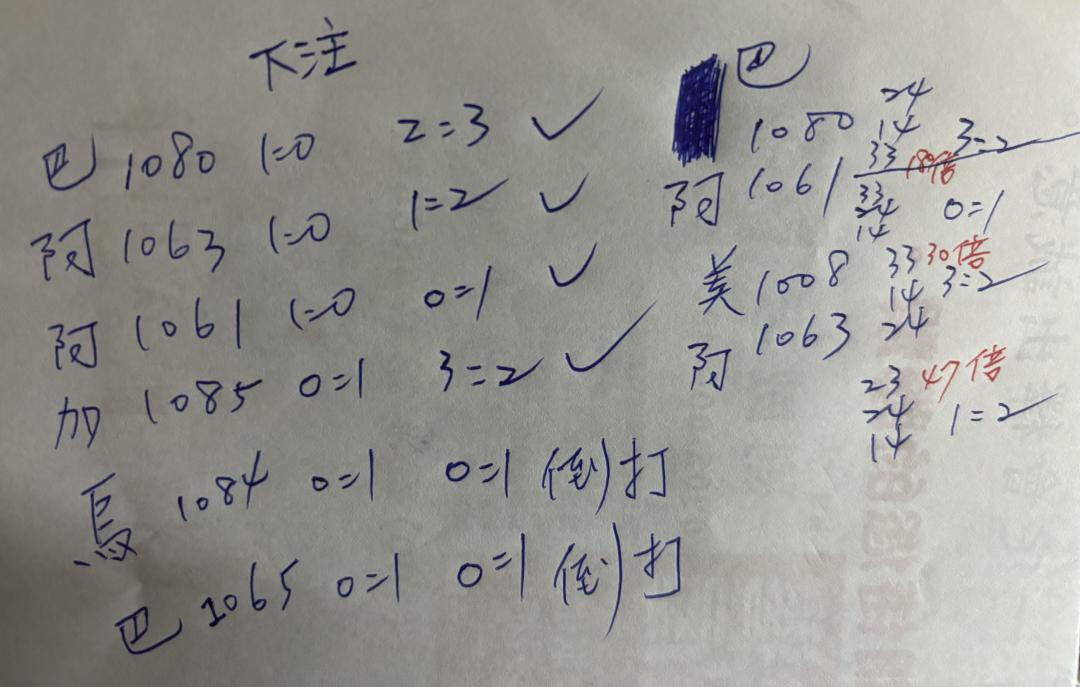 下注
巴 1080 1=0 2=3 ✓
阿 1063 1=0 1=2 ✓
阿 1061 1=0 0=1 ✓
加 1085 0=1 3=2 ✓
烏 1084 0=1 0=1 (倒)打
巴 1065 0=1 0=1 (倒)打
巴
1080 24
14
33 3=2
阿 1061 33
24
14 0=1
美 1008 33 30倍
14 3=2
24
阿 1063 23 47倍
24 1=2
14